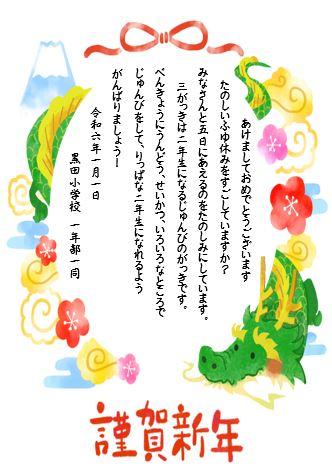 あけましておめでとうございます
たのしいふゆ休みをすごしていますか？
みなさんと五日にあえるのをたのしみにしています。
三がっきは二年生になるじゅんびのがっきです。
べんきょうにうんどう、せいかつ、いろいろなところで
じゅんびをして、りっぱな二年生になれるよう
がんばりましょうー
令和六年一月一日
黒田小学校 一年部一同
謹賀新年